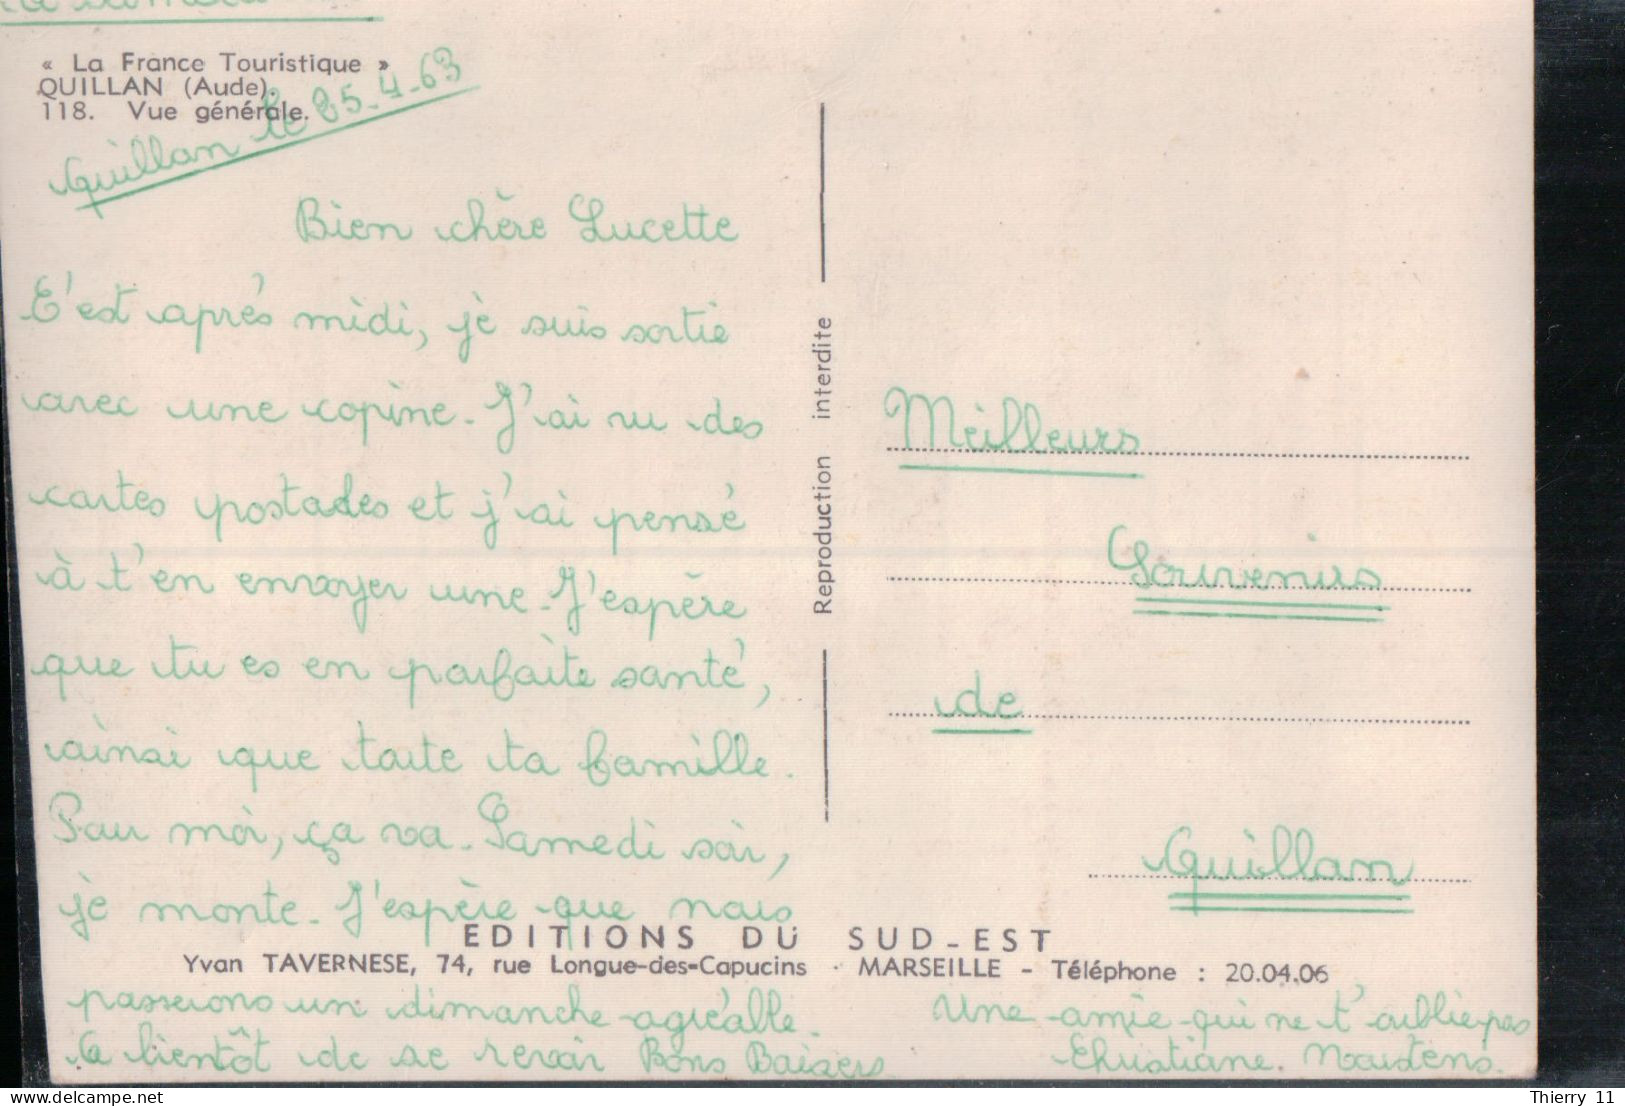 « La France Touristique »
QUILLAN (Aude).
118. Vue générale.
Quillan le 25-4-63
Bien chère Lucette
C'est après midi, je suis sortie
avec une copine. J'ai vu des
cartes postales et j'ai pensé
à t'en envoyer une. J'espère
que tu es en parfaite santé,
ainsi que toute ta famille.
Pour moi, ça va. Samedi soir,
je monte. J'espère que nous
passerons un dimanche agréable.
A bientôt de se revoir Bons Baisers
Reproduction interdite
Meilleurs
Souvenirs
de
Quillan
EDITIONS DU SUD-EST
Yvan TAVERNESE, 74, rue Longue-des-Capucins · MARSEILLE - Téléphone : 20.04.06
Une amie qui ne t'oublie pas
Christiane.
delcampe.net
Thierry 11